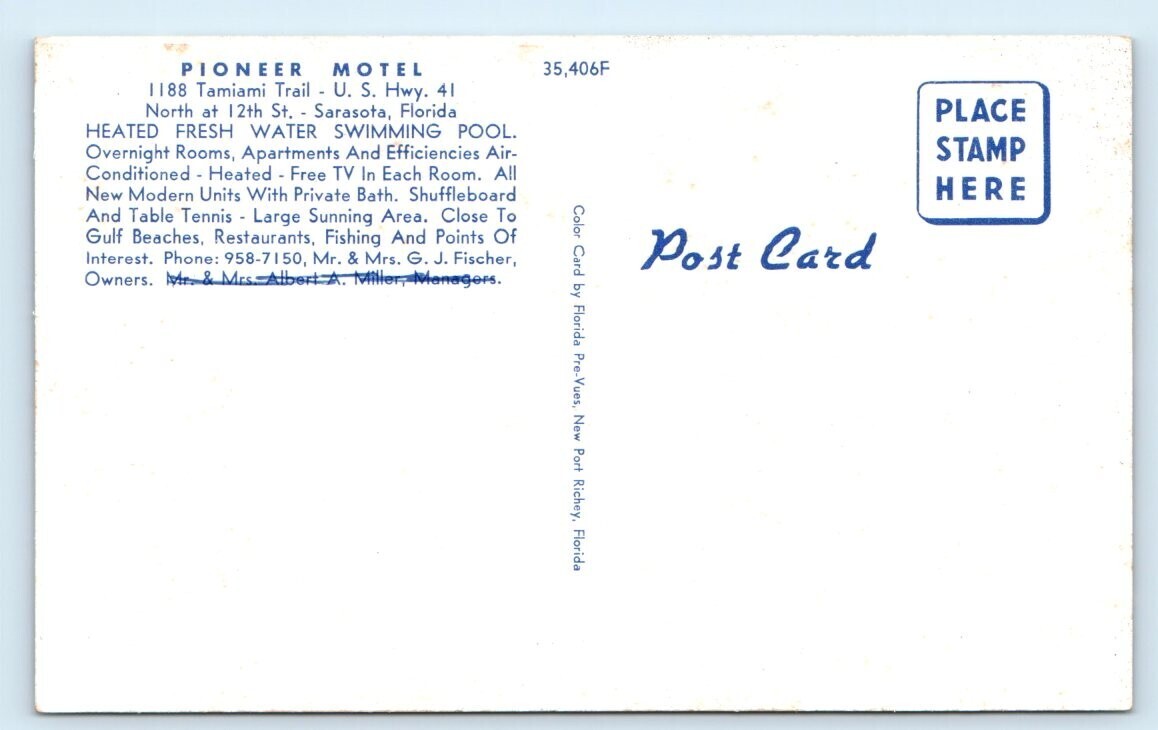 PIONEER MOTEL
1188 Tamiami Trail - U. S. Hwy. 41
North at 12th St. - Sarasota, Florida
HEATED FRESH WATER SWIMMING POOL.
Overnight Rooms, Apartments And Efficiencies Air-
Conditioned - Heated - Free TV In Each Room. All
New Modern Units With Private Bath. Shuffleboard
And Table Tennis - Large Sunning Area. Close To
Gulf Beaches, Restaurants, Fishing And Points Of
Interest. Phone: 958-7150, Mr. & Mrs. G. J. Fischer,
Owners. Mr. & Mrs. Albert A. Miller, Managers.
35,406F
Color Card by Florida Pre-Vues, New Port Richey, Florida
Post Card
PLACE
STAMP
HERE